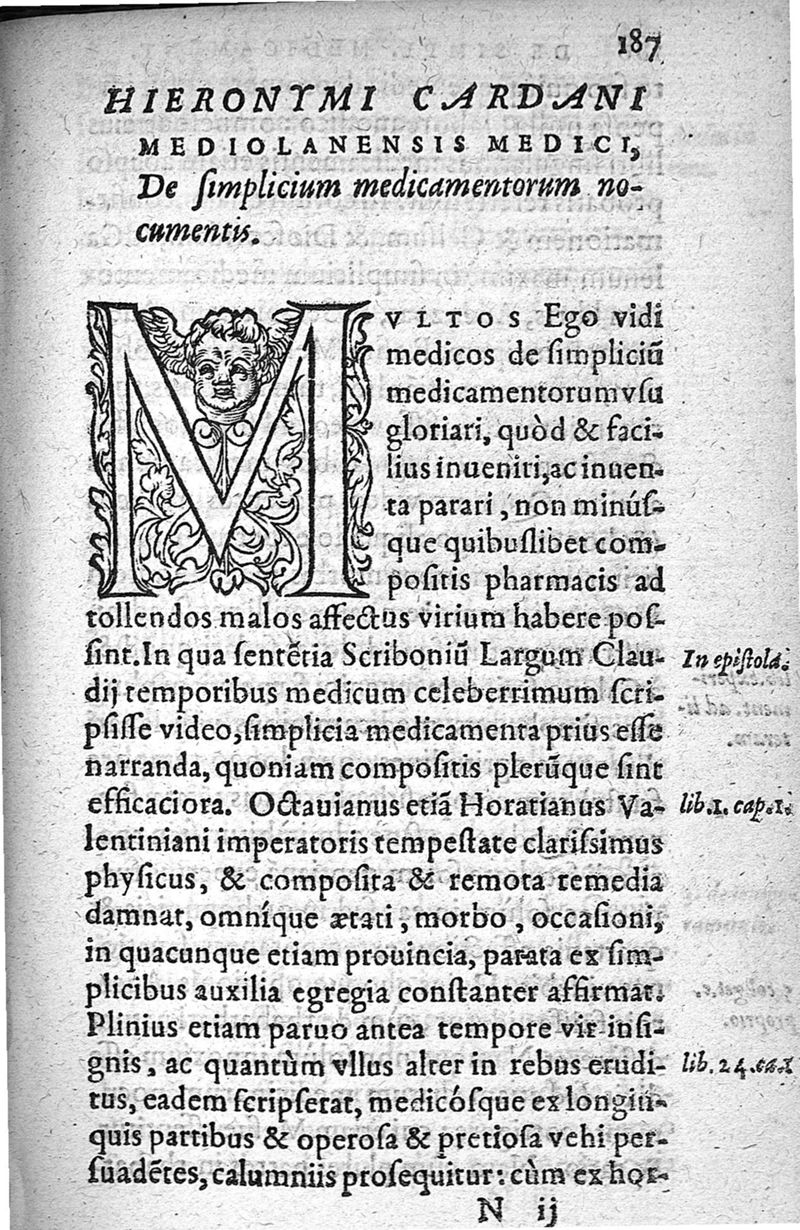 187
HIERONYMI CARDANI
MEDIOLANENSIS MEDICI,
De ſimplicium medicamentorum no-
cumentis.
MVLTOS Ego vidi
medicos de ſimpliciũ
medicamentorum vſu
gloriari, quòd & faci-
lius inueniri, ac inuen-
ta parari, non minúſ-
que quibuſlibet com-
poſitis pharmacis ad
tollendos malos affectus virium habere poſ-
ſint. In qua ſentẽtia Scriboniũ Largum Clau-
In epiſtola.
dij temporibus medicum celeberrimum ſcri-
pſiſſe video, ſimplicia medicamenta prius eſſe
narranda, quoniam compoſitis plerũque ſint
efficaciora. Octauianus etiã Horatianus Va-
lib.1. cap.1.
lentiniani imperatoris tempeſtate clariſsimus
phyſicus, & compoſita & remota remedia
damnat, omníque ætati, morbo, occaſioni,
in quacunque etiam prouincia, parata ex ſim-
plicibus auxilia egregia conſtanter affirmat.
Plinius etiam paruo antea tempore vir inſi-
gnis, ac quantùm vllus alter in rebus erudi-
lib. 24.
tus, eadem ſcripſerat, medicóſque ex longin-
quis partibus & operoſa & pretioſa vehi per-
ſuadẽtes, calumniis proſequitur: cùm ex hor-
N ij